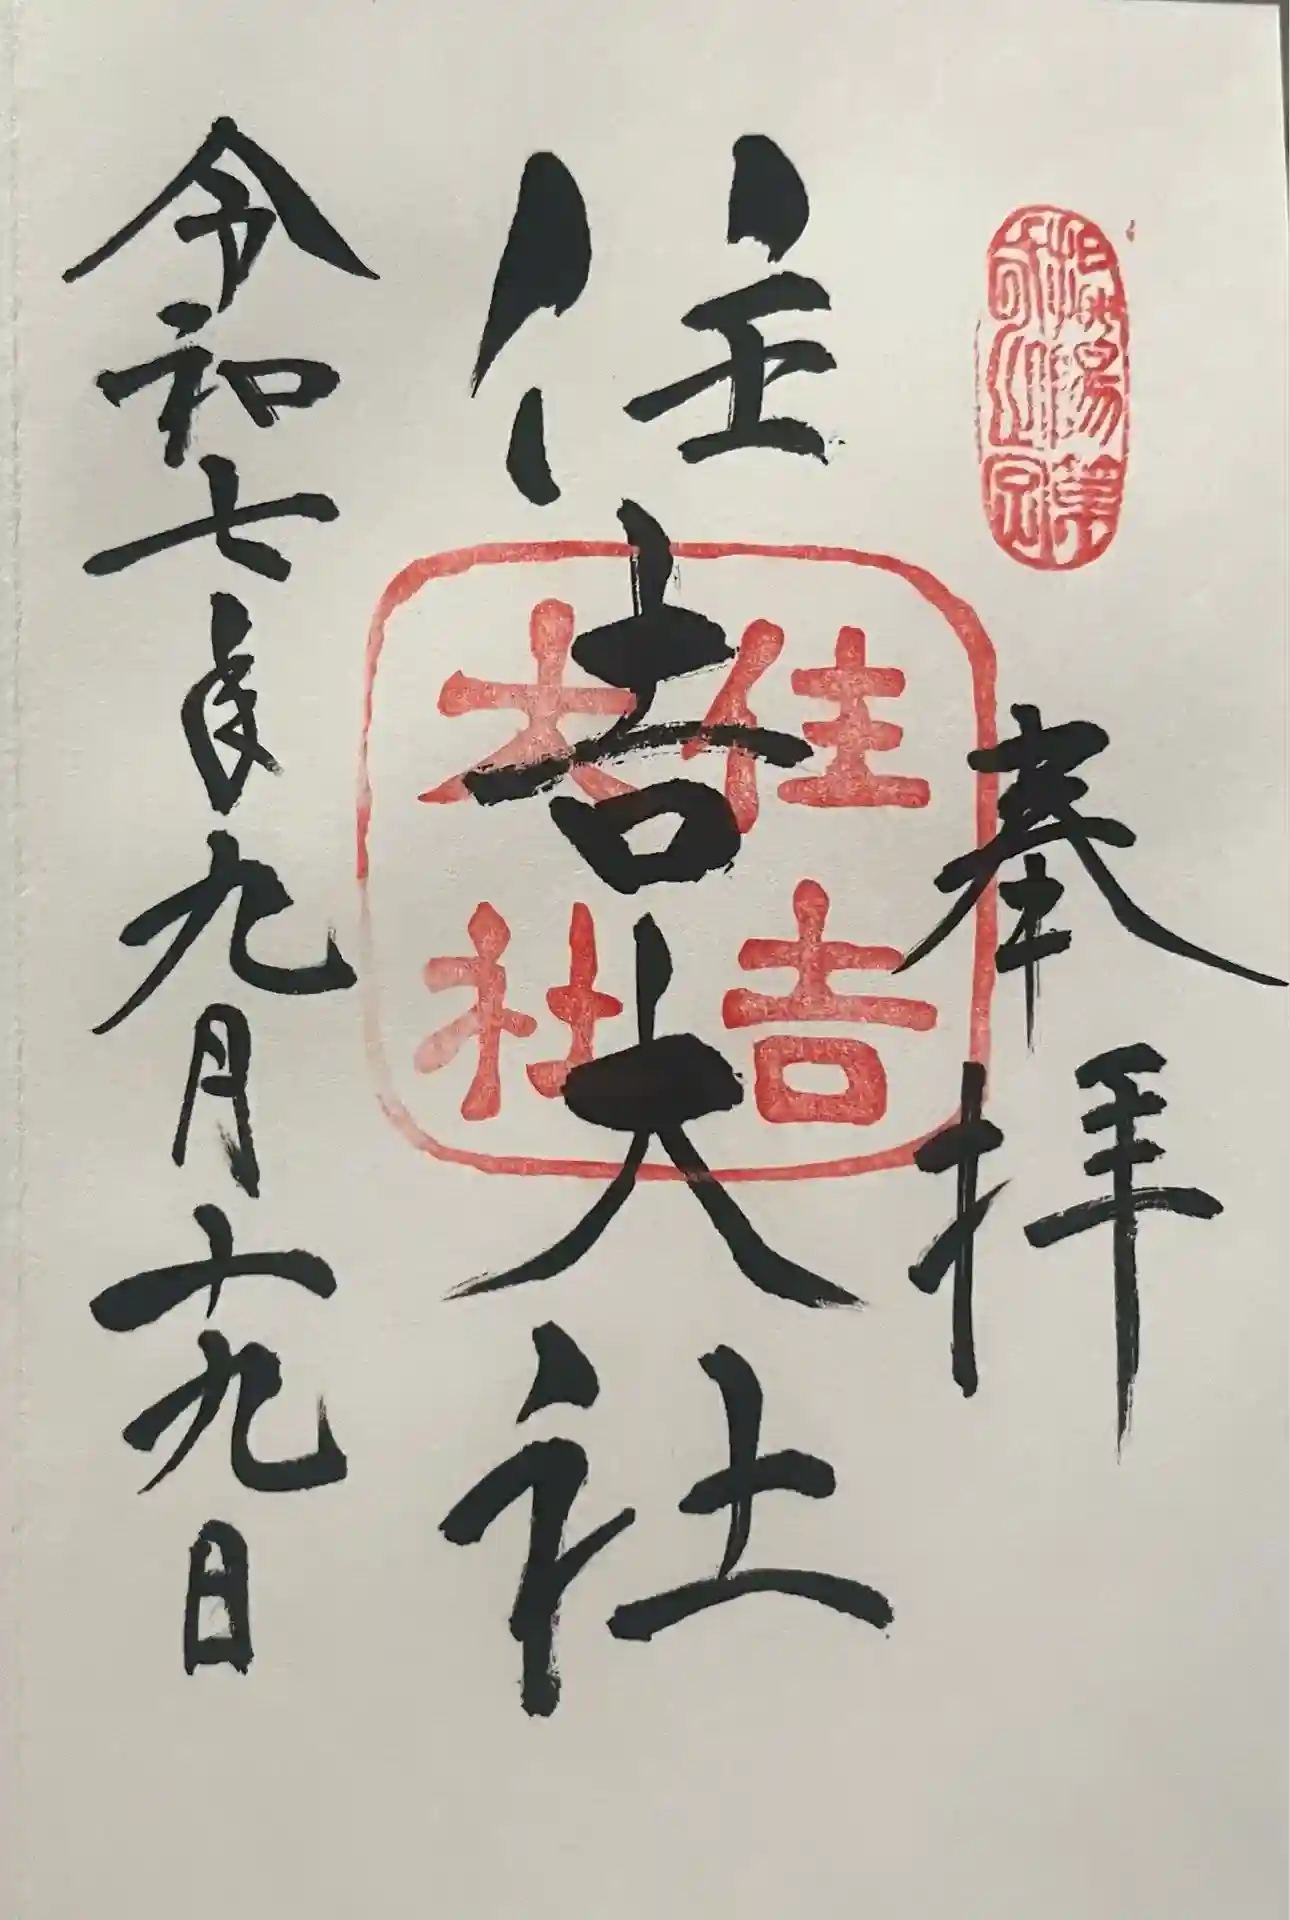 奉拝
住吉大社
住吉
大社
令和七年九月十九日